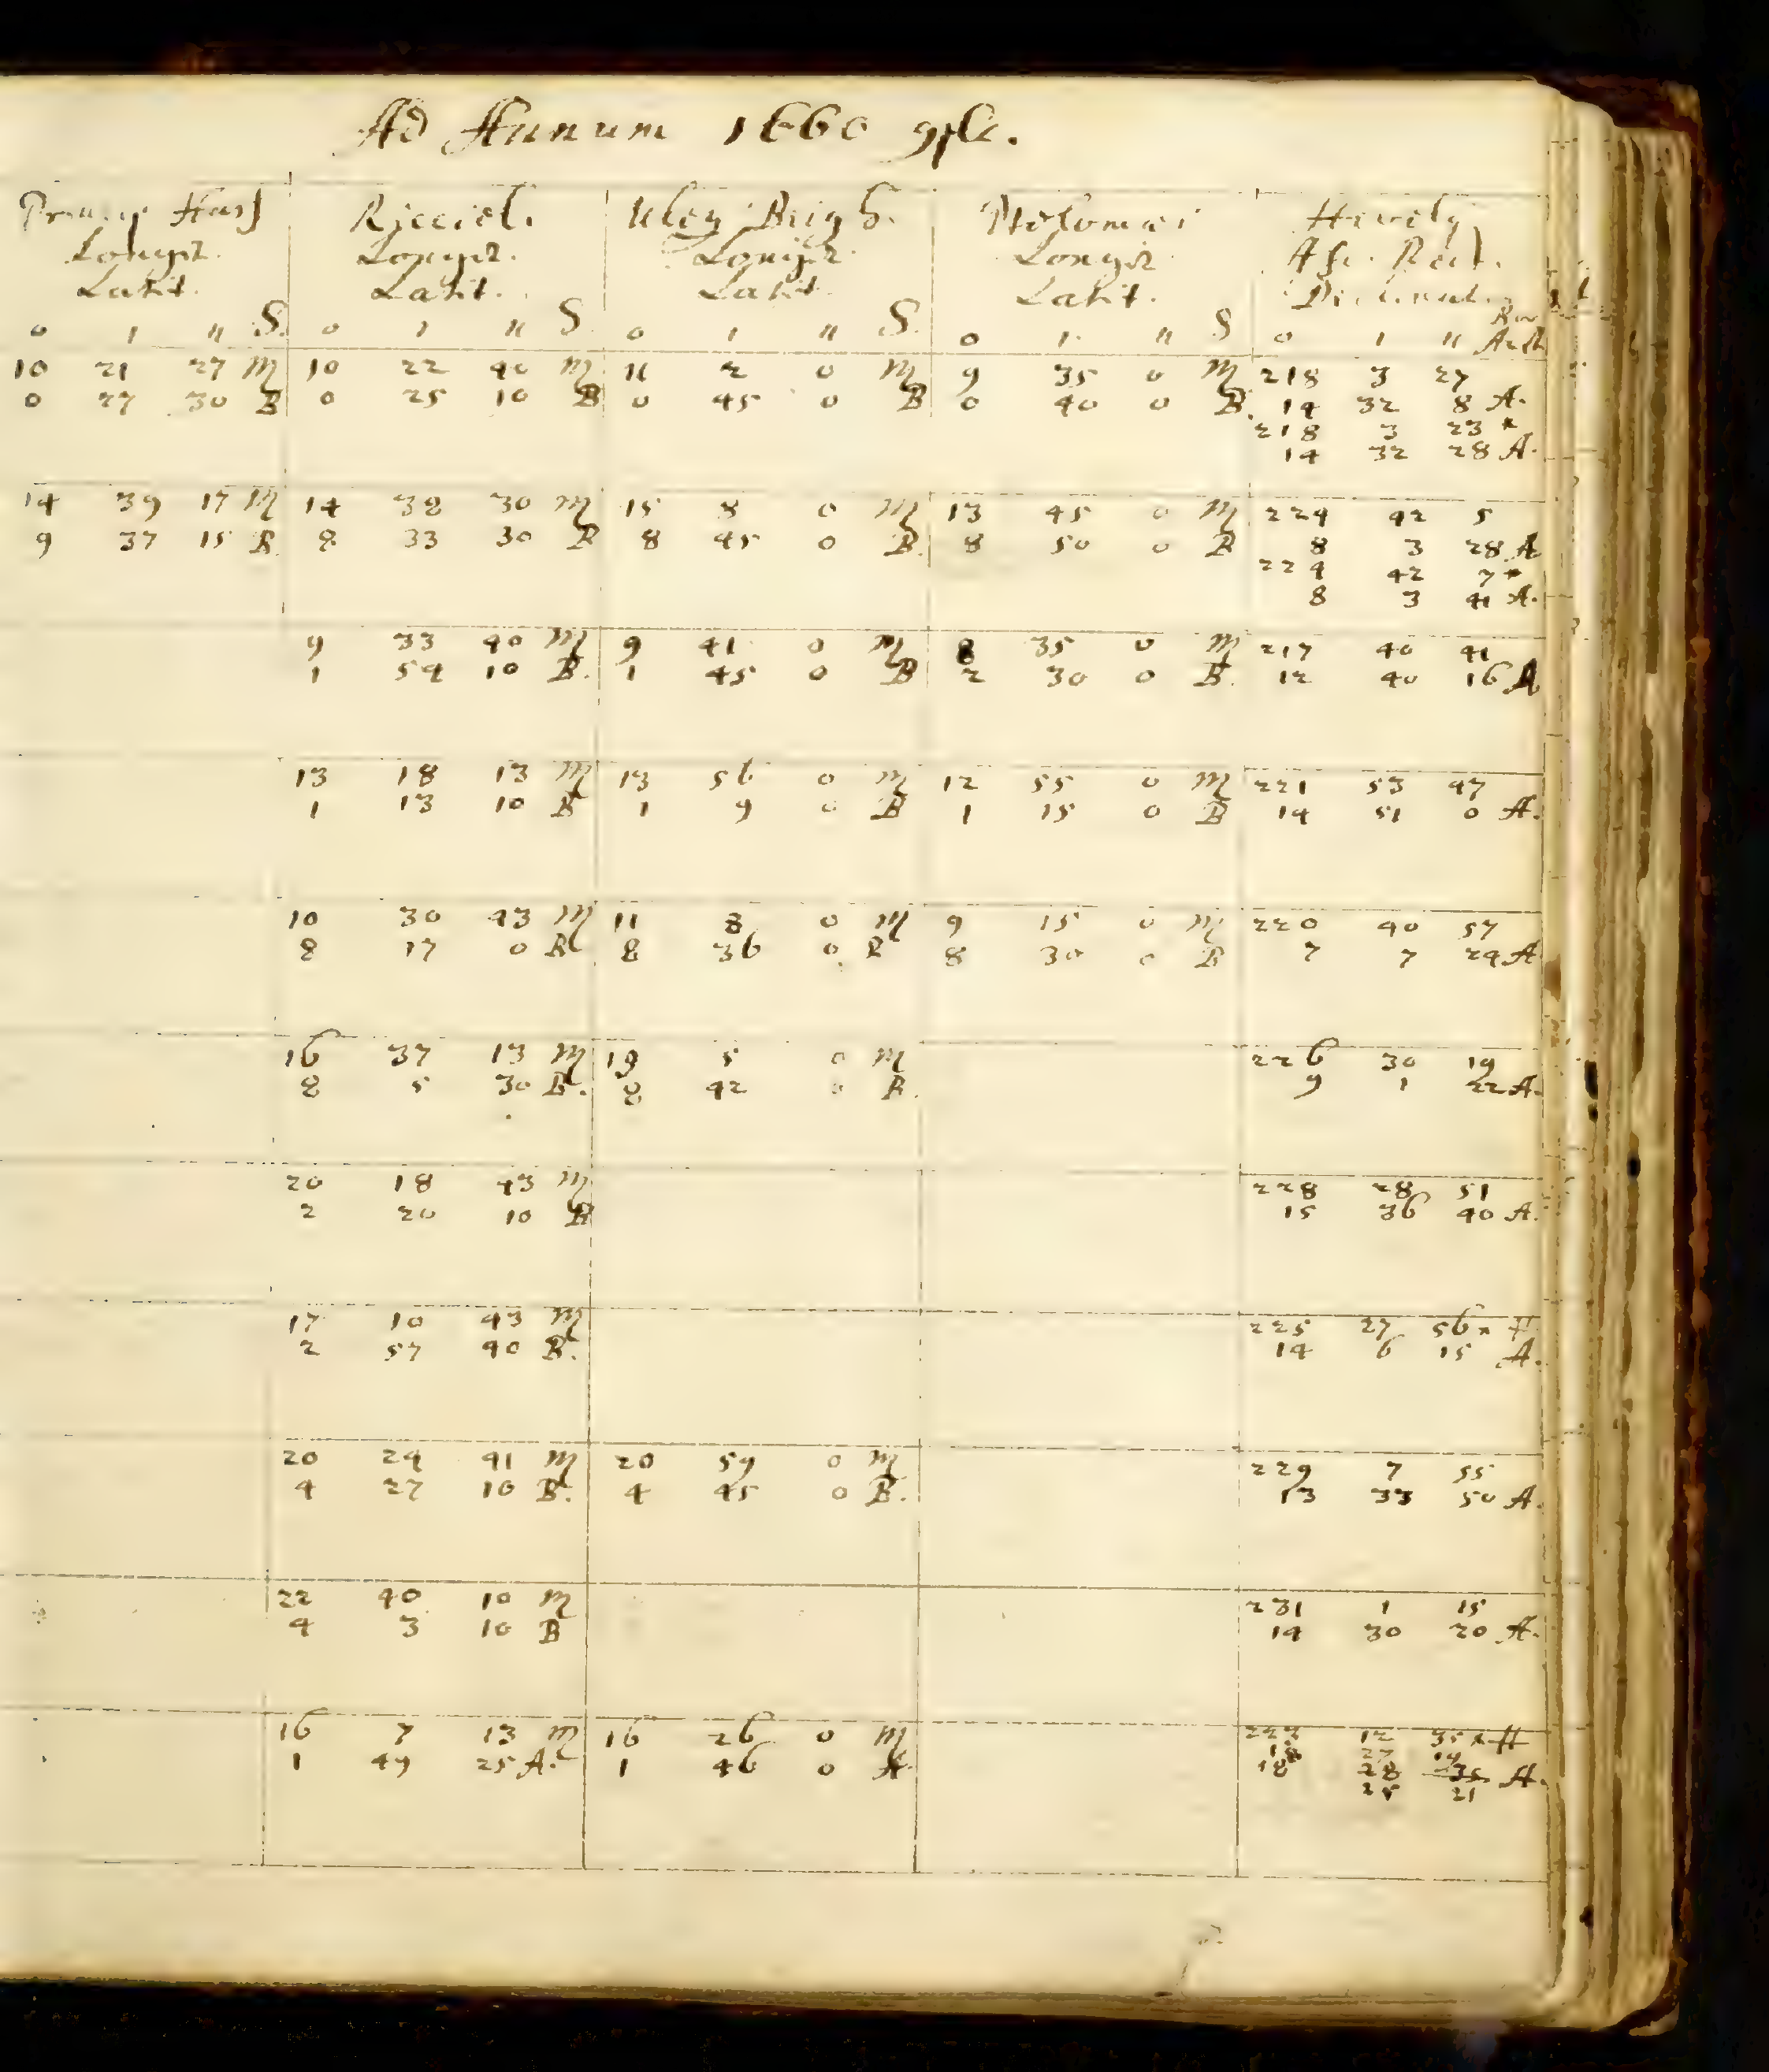 Ad Annum 1660 gple.
Princip Hass Ricciol. Uleg Beigh. Ptolomæi Hevely
Longit. Longit. Longit. Longit. Asc. Rect.
Latit. Latit. Latit. Latit. Declinat.
0 1 11 S. 0 1 11 S. 0 1 11 S. 0 1 11 S 0 1 11
10 21 27 ♏ 10 22 40 ♏ 11 2 0 ♏ 9 35 0 ♏ 218 3 27
0 27 30 B 0 25 10 B 0 45 0 B 0 40 0 B. 14 32 8 A.
218 3 23 *
14 32 28 A.
14 39 17 ♏ 14 38 30 ♏ 15 8 0 ♏ 13 45 0 ♏ 224 42 5
9 37 15 B. 8 33 30 B 8 45 0 B. 8 50 0 B 8 3 28 A
224 42 7 *
8 3 41 A.
9 33 40 ♏ 9 41 0 ♏ 8 35 0 ♏ 217 40 41
1 54 10 B. 1 45 0 B 2 30 0 B. 12 40 16 A
13 18 13 ♏ 13 56 0 ♏ 12 55 0 ♏ 221 53 47
1 13 10 B 1 9 0 B 1 15 0 B 14 51 0 A.
10 30 43 ♏ 11 8 0 ♏ 9 15 0 ♏ 220 40 57
8 17 0 B 8 36 0 B 8 30 0 B 7 7 24 A
16 37 13 ♏ 19 5 0 ♏ 226 30 19
8 5 30 B. 8 42 0 B. 9 1 22 A.
20 18 43 ♏ 228 28 51
2 20 10 B 15 36 40 A.
17 10 43 ♏ 225 27 56 * H
2 57 40 B. 14 6 15 A.
20 24 41 ♏ 20 59 0 ♏ 229 7 55
4 27 10 B. 4 45 0 B. 13 33 50 A.
22 40 10 ♏ 231 1 15
4 3 10 B 14 30 20 A.
16 7 13 ♏ 16 26 0 ♏ 12 35 * H
18 27 19
1 49 25 A. 1 46 0 A. 18 28 35 A.
25 21